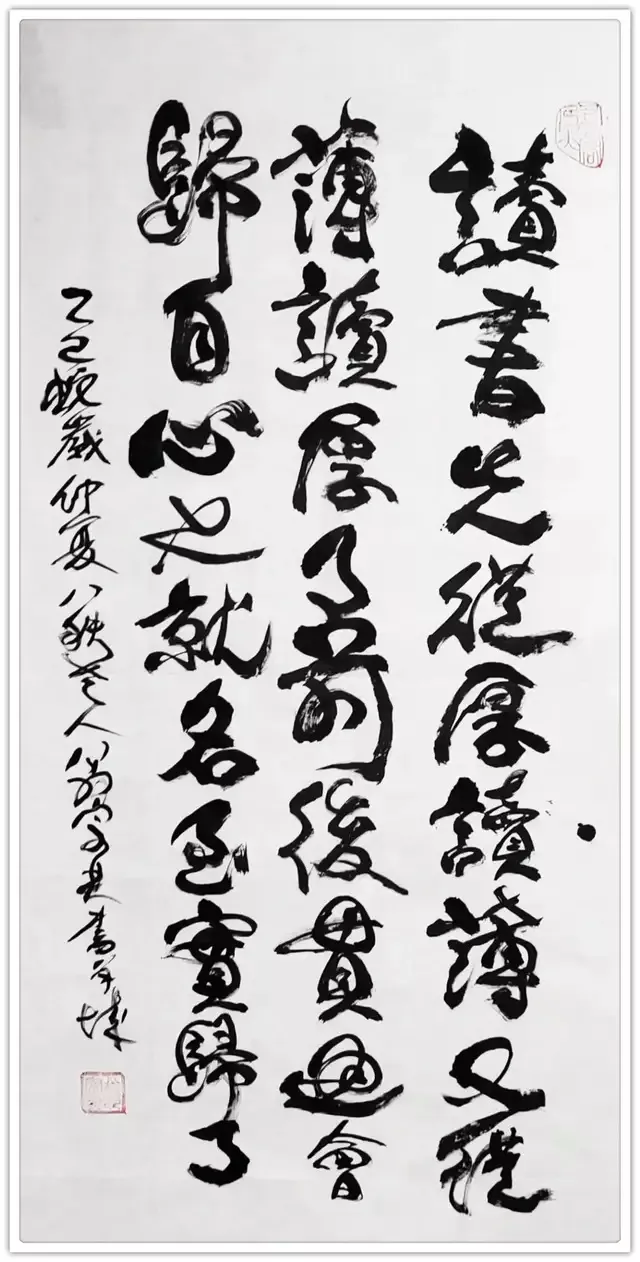 讀書先從厚讀薄又從
薄讀厚了前後貫通會
歸自心也就名至實歸了
乙巳蛇歲仲夏八秩老人書